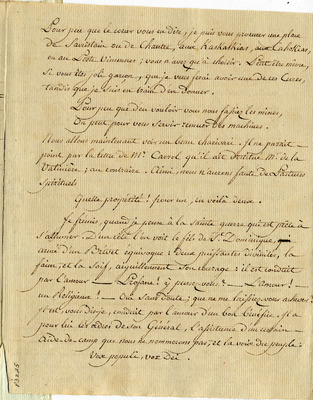 Pour peu que le coeur vous en dise, je puis vous procurer une place
de Sacristain ou de Chantre, aux Kaskaskias, aux Cahokias,
ou au Poste Vincennes; vous n'avez qu'à choisir. Peut être même,
si vous êtes joli garçon, que je vous ferai avoir une de ces Cures,
tandis que je suis en train d'en donner.
Pour peu que d'en vouloir vous nous fassiez les mines,
On peut pour vous servir remuer des machines.
Nous allons maintenant voir un beau charivari. Il ne paroit
point par la lettre de Mr. Carrol qu'il ait destitué Mr. de la
Valiniere; au contraire. Ainsi, nous n'aurons faute de Pasteurs
Spirituels
Quelle prospérité! pour un, en voilà deux.
Je frémis, quand je pense à la sainte guerre qui est prête à
s'allumer. D'un côté l'on voit le fils de St. Dominique,
armé d'un Brevet équivoque: Deux puissantes Divinités, la
faim, et la Soif, aiguillonnent son courage: il est conduit
par l'amour — Profane! y pensez-vous? — L'amour!
un Religieux! — Oui sans doute; que ne me laissiez-vous achever?
il est, vous dis-je, conduit par l'amour d'un bon Bénéfice. Il a
pour lui les ordres de son Général, l'assistance d'un certain
Aide-de-camp que nous ne nommerons pas, et la voix du peuple:
Vox populi, vox Dei.